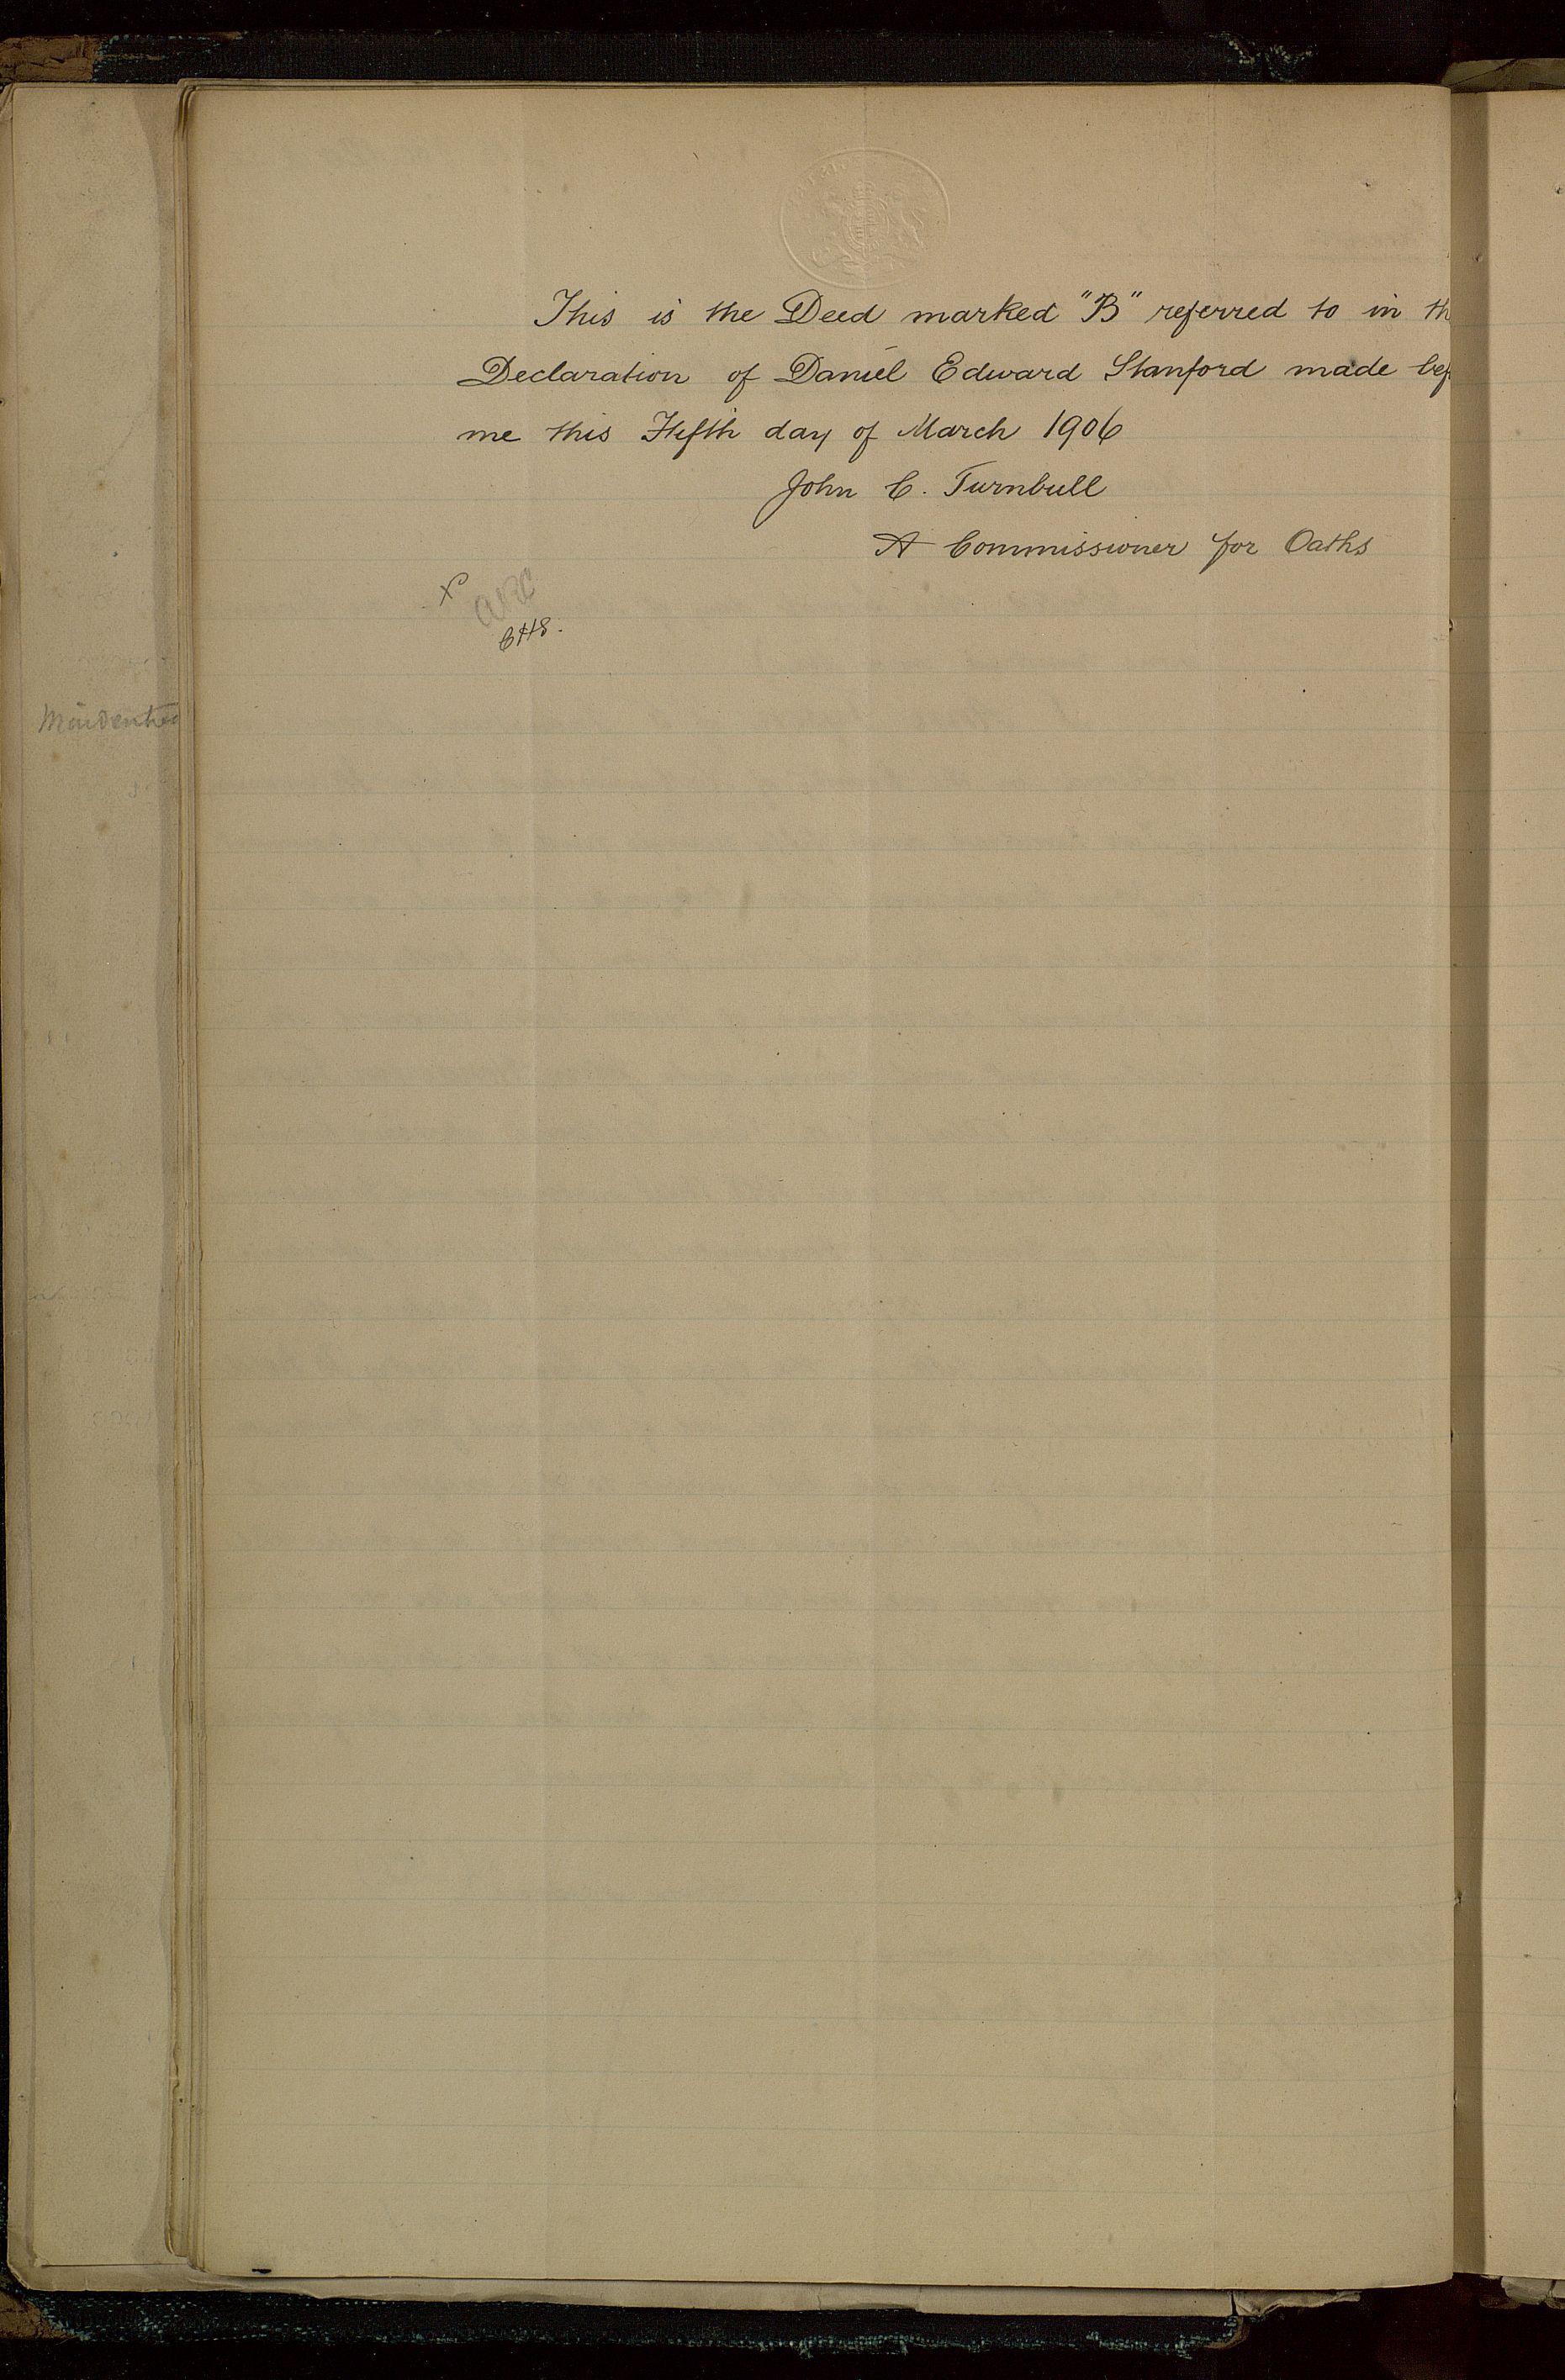 This is the Deed marked "B" referred to in th
Declaration of Daniel Edward Stanford made bef
me this Fifth day of March 1906
John C. Turnbull
A Commissioner for Oaths
CHS.
Maidenhea